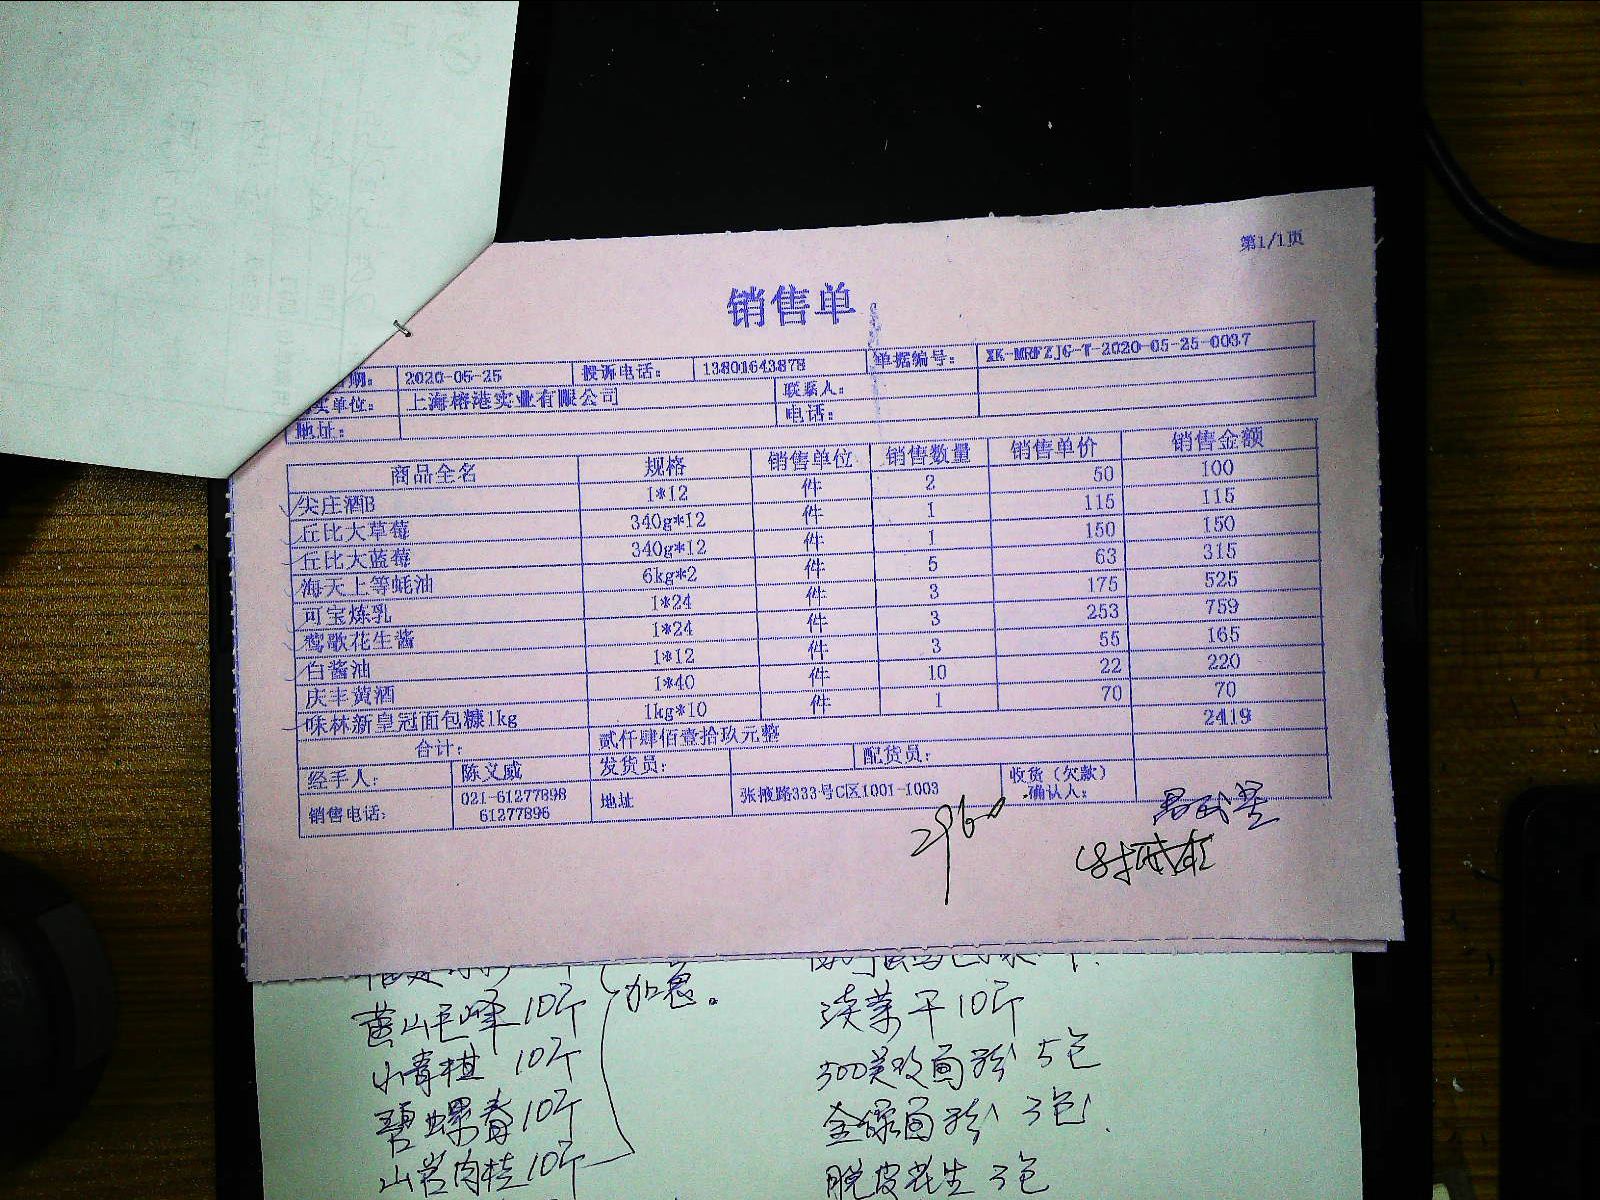 第1/1页
销售单
期： 2020-05-25 投诉电话： 13801643878 单据编号： XK-MRFZJG-T-2020-05-25-0037
买单位： 上海榕港实业有限公司 联系人：
地址： 电话：
商品全名 规格 销售单位 销售数量 销售单价 销售金额
尖庄酒B 1*12 件 2 50 100
丘比大草莓 340g*12 件 1 115 115
丘比大蓝莓 340g*12 件 1 150 150
海天上等蚝油 6kg*2 件 5 63 315
可宝炼乳 1*24 件 3 175 525
莺歌花生酱 1*24 件 3 253 759
白酱油 1*12 件 3 55 165
庆丰黄酒 1*40 件 10 22 220
味林新皇冠面包糠1kg 1kg*10 件 1 70 70
合计： 贰仟肆佰壹拾玖元整 2419
经手人： 陈义威 发货员： 配货员：
销售电话： 021-61277898 61277896 地址 张掖路333号C区1001-1003 收货（欠款）确认人：
加急。
黄山毛峰 10斤 淡菜干 10斤
小青柑 10斤 300美玫面粉 5包
碧螺春 10斤 金像面粉 3包
山岩肉桂 10斤 脱皮花生 3包